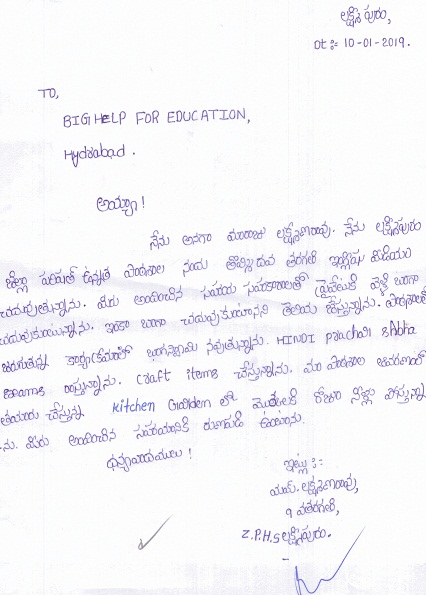 లక్ష్మీపురం,
Dt :- 10-01-2019.
TO,
BIG HELP FOR EDUCATION,
Hyderabad.
అయ్యా!
నేను అనగా మూరాజు లక్ష్మణరావు. నేను లక్ష్మీపురం
జిల్లా పరిషత్ ఉన్నత పాఠశాల నందు తొమ్మిదవ తరగతి ఇంగ్లీషు మీడియం
చదువుతున్నాను. మీరు అందించిన సహాయ సహకారాలతో వెళ్లి బాగా
చదువుకుంటున్నాను. ఇంకా బాగా చదువుకుంటానని తెలియ చేస్తున్నాను. పాఠశాలలో
జరుగుతున్న కార్యక్రమాలలో నవుతున్నాను. HINDI prachar shbha
exams రాస్తున్నాను. craft items చేస్తున్నాను. మా పాఠశాల ఆవరణలో
తయారు చేస్తున్న kitchen Garden లో మొక్కలకి రోజూ నీళ్లు పోస్తున్నా
ను. మీరు అందించిన సహాయానికి రుణపడి ఉంటాను.
ధన్యవాదములు!
ఇట్లు :-
యమ్. లక్ష్మణరావు,
9 వతరగతి,
Z.P.H.S లక్ష్మీపురం.